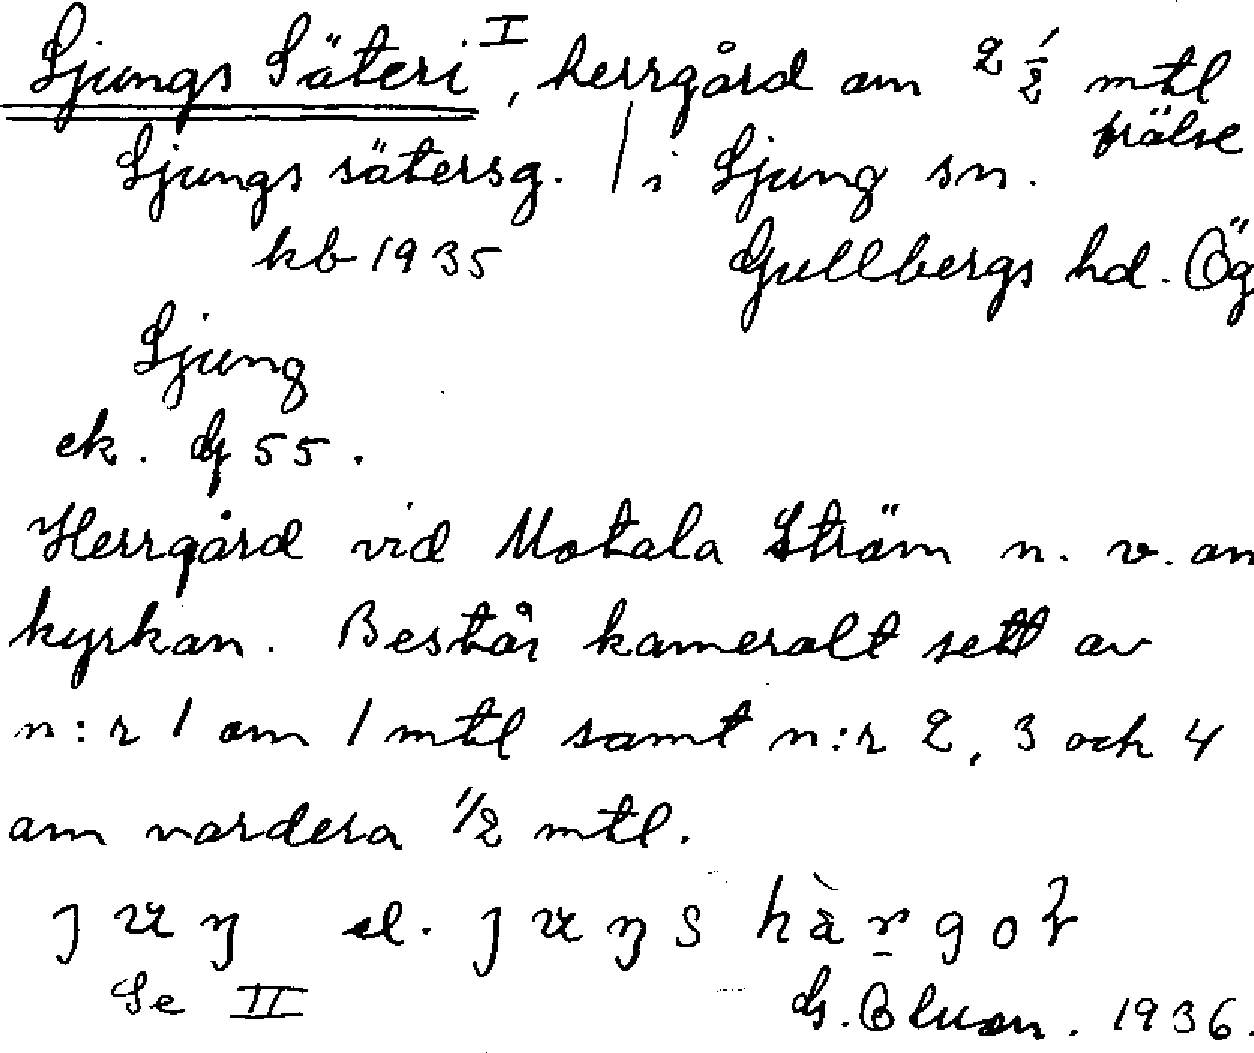 Ljungs Säteri I, herrgård om 2 1/2 mtl
frälse
Ljungs sätersg. / i Ljung sn.
kb 1935 Gullbergs hd. Ög
Ljung
ek. 55.
Herrgård vid Motala Ström n. v. om
kyrkan. Består kameralt sett av
n:r 1 om 1 mtl samt n:r 2, 3 och 4
om vardera 1/2 mtl.
el.
Se II G. 1936.